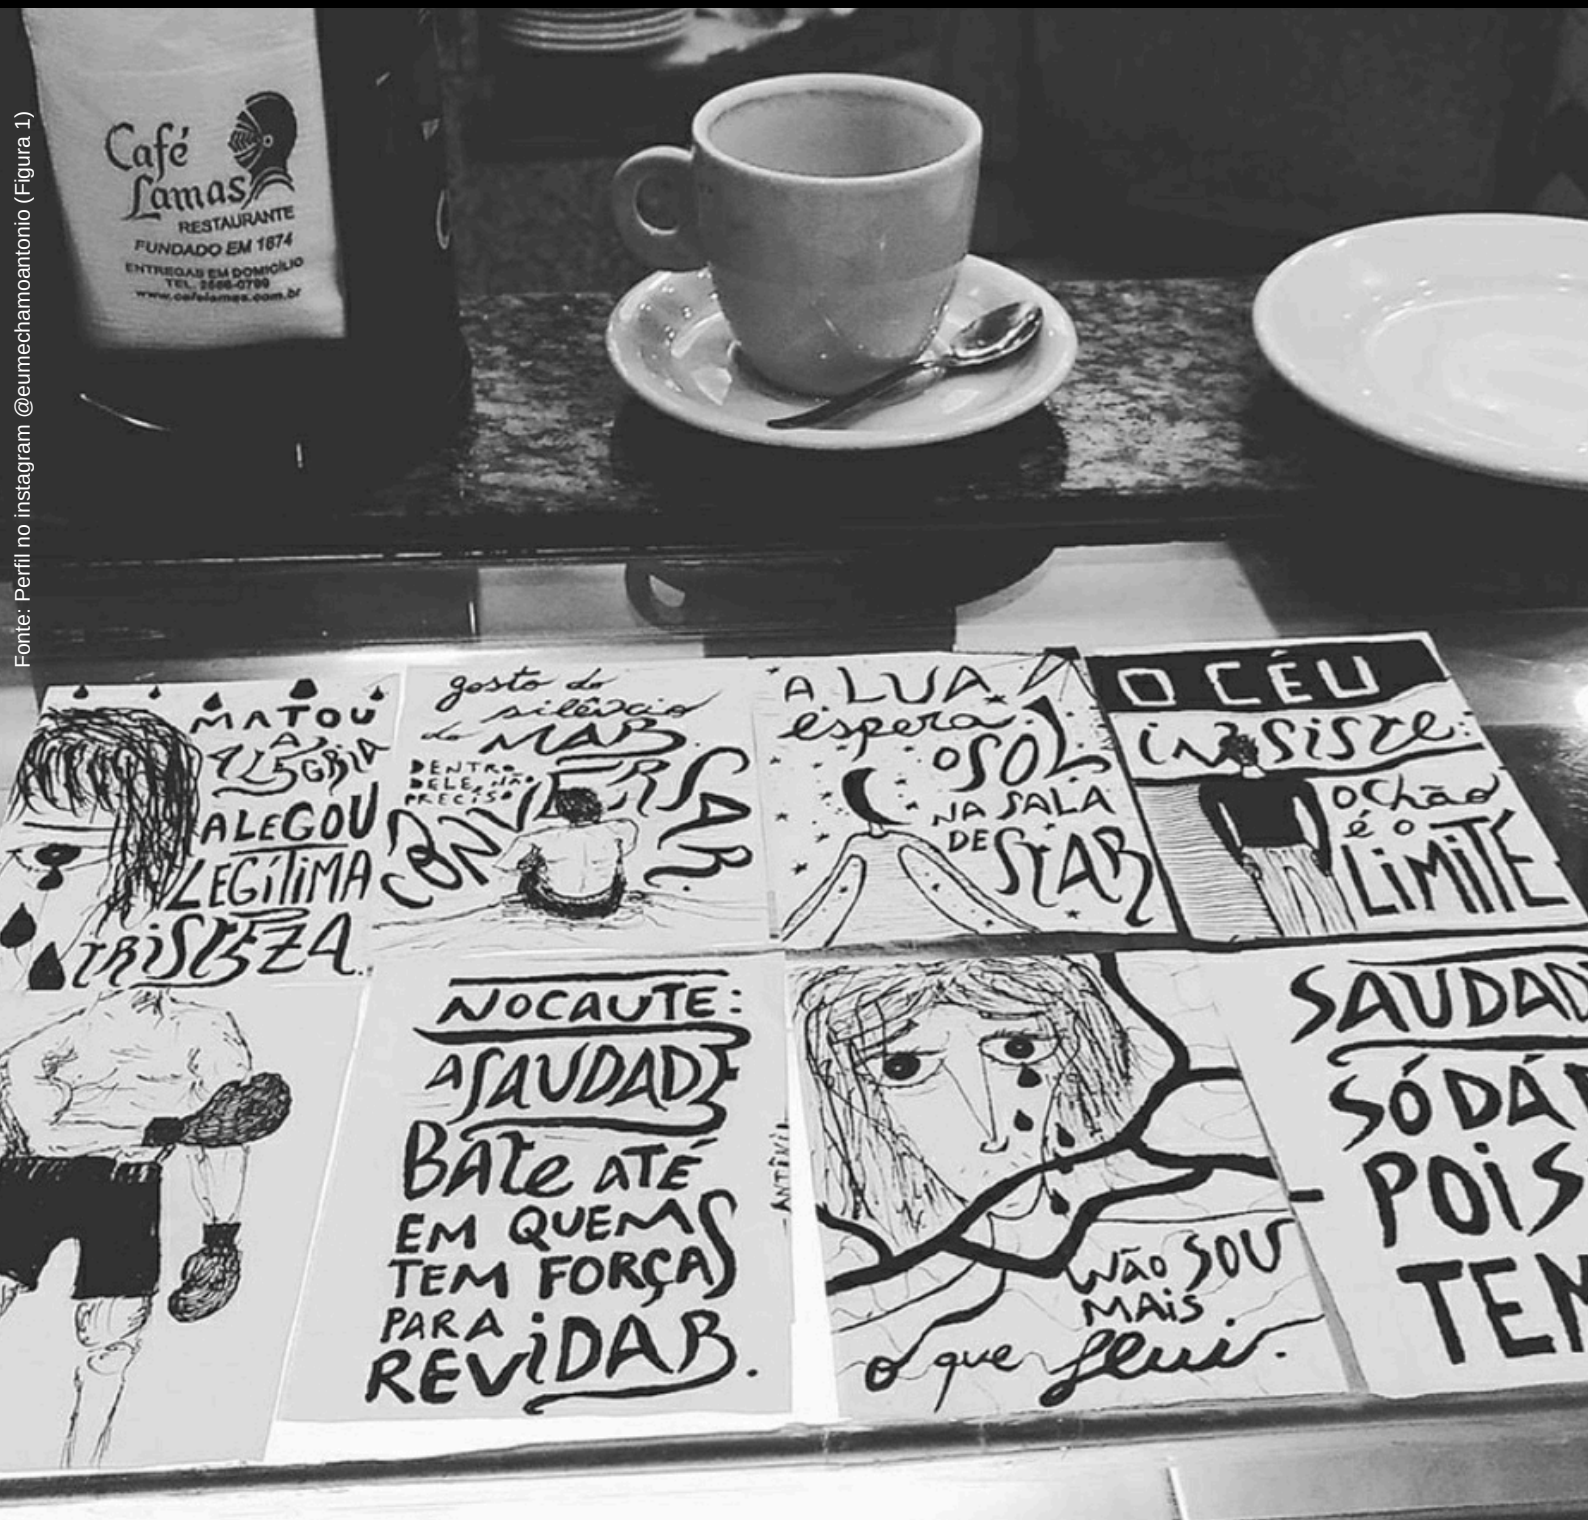 Fonte: Perfil no instagram @eumechamoantonio (Figura 1)
Café
Lamas
RESTAURANTE
FUNDADO EM 1874
ENTREGAS EM DOMICÍLIO
TEL. 2556-0799
www.cafelamas.com.br
MATOU
A
ALEGRIA
ALEGOU
LEGÍTIMA
TRISTEZA.
gosto do
silêncio
do MAR.
DENTRO
DELE, NÃO
PRECISO
CONVERSAR.
A LUA
espera
O SOL
NA SALA
DE
STAR
O CÉU
insiste:
o chão
é o
LIMITE
NOCAUTE:
A SAUDADE
BATE ATÉ
EM QUEM
TEM FORÇAS
PARA
REVIDAR.
ANTÔNIO
NÃO SOU
MAIS
o que flui.
SAUDAD
SÓ DÁ
POIS
TEM